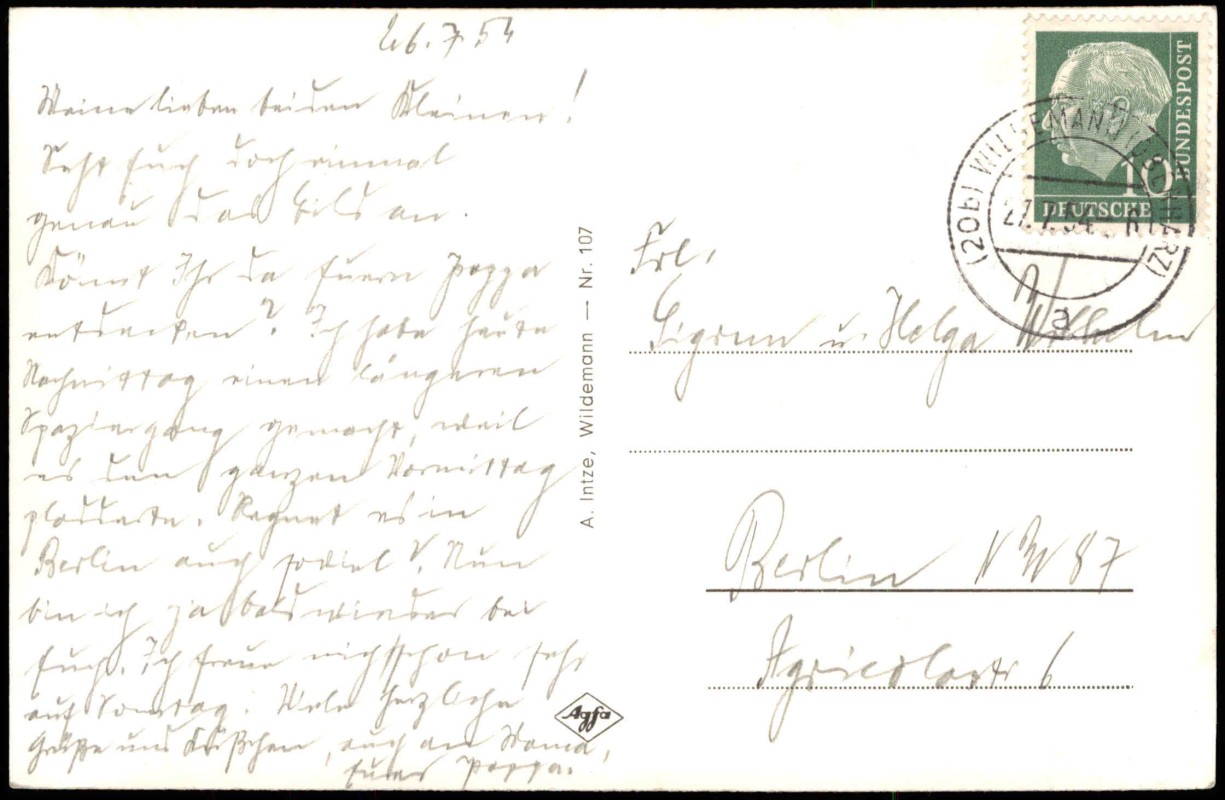 26.7.54
Meine lieben beiden Kleinen!
Seht Euch doch einmal
genau das Bild an.
Könnt Ihr da Euern Pappa
entdecken? Ich habe heute
Nachmittag einen längeren
Spaziergang gemacht, weil
es den ganzen Vormittag
pladderte. Regnet es in
Berlin auch soviel? Nun
bin ich ja bald wieder bei
Euch. Ich freue mich schon sehr
auf Sonntag. Viele herzliche
Grüße und Küßchen, auch an Mama,
Euer Pappa.
A. Intze, Wildemann — Nr. 107
Agfa
DEUTSCHE
BUNDESPOST
10
(20b) WILDEMANN (OBERHARZ)
27.7.54
a
Frl.
Sigrun u. Helga Wilhelm
Berlin NW 87
Agricolastr 6